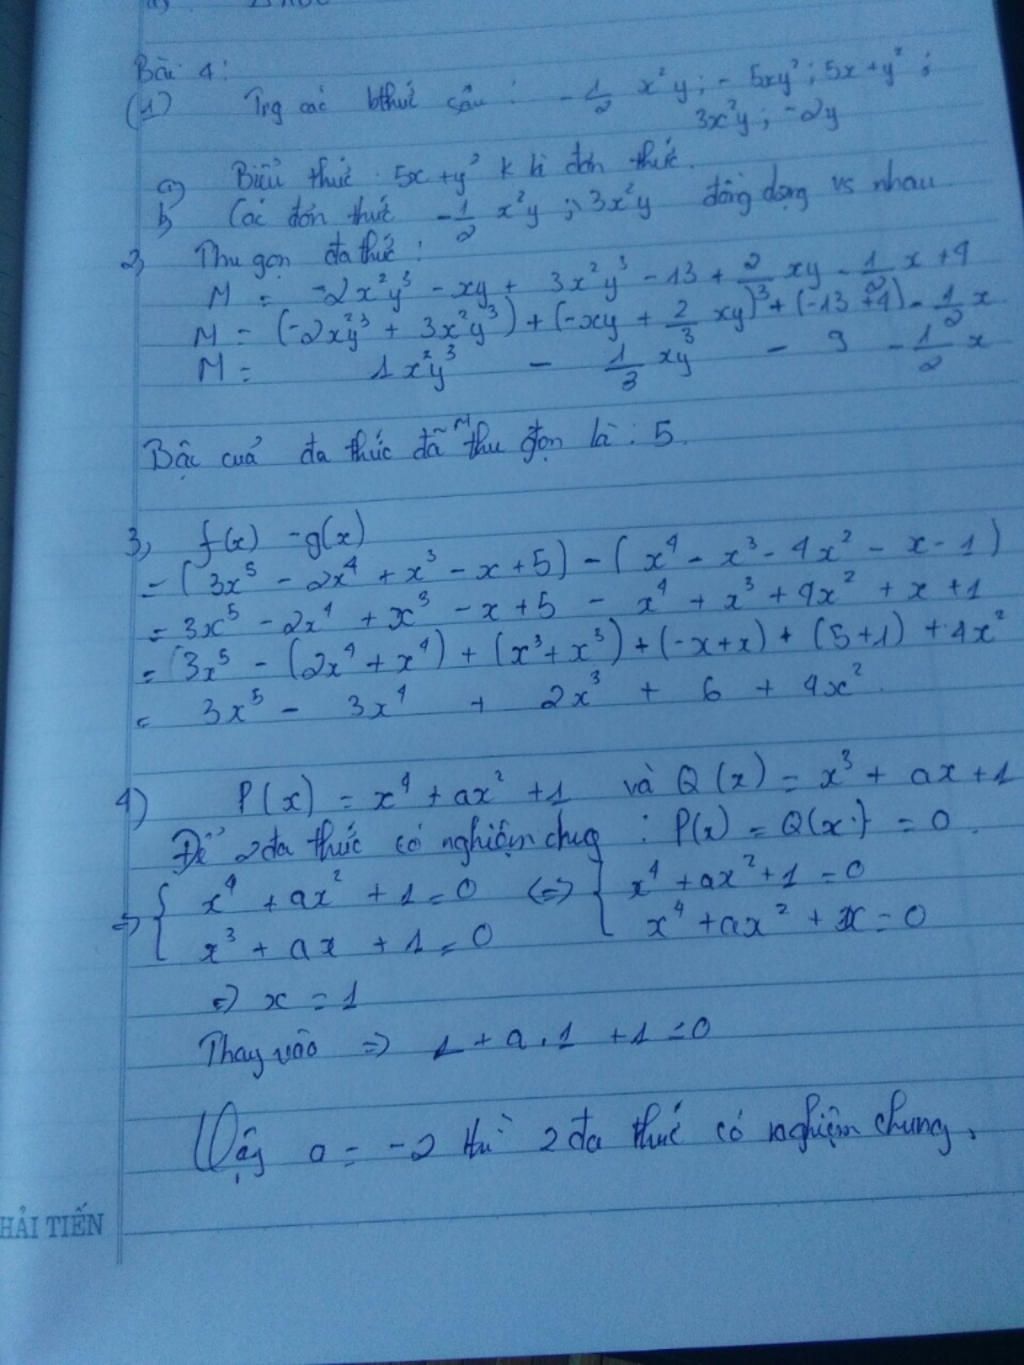 Bài 4:
(1) Trg các bthức sau: -1/2 x²y; - 5xy²; 5x + y²;
3x²y; -2y
a) Biểu thức 5x + y² k là đơn thức.
b, Các đơn thức -1/2 x²y; 3x²y đồng dạng vs nhau
2, Thu gọn đa thức:
M = -2x²y³ - xy + 3x²y³ - 13 + 2/3 xy - 1/2 x + 4
M = (-2x²y³ + 3x²y³) + (-xy + 2/3 xy) + (-13 + 4) - 1/2 x
M = 1x²y³ - 1/3 xy - 9 - 1/2 x
Bậc cuả đa thức M đã thu gọn là: 5.
3, f(x) - g(x)
= (3x⁵ - 2x⁴ + x³ - x + 5) - (x⁴ - x³ - 4x² - x - 1)
= 3x⁵ - 2x⁴ + x³ - x + 5 - x⁴ + x³ + 4x² + x + 1
= (3x⁵ - (2x⁴ + x⁴) + (x³ + x³) + (-x + x) + (5 + 1) + 4x²
= 3x⁵ - 3x⁴ + 2x³ + 6 + 4x².
4) P(x) = x⁴ + ax² + 1 và Q(x) = x³ + ax + 1
Để 2 đa thức có nghiệm chug : P(x) = Q(x) = 0.
=> { x⁴ + ax² + 1 = 0 <=> { x⁴ + ax² + 1 = 0
x³ + ax + 1 = 0 x⁴ + ax² + x = 0
=> x = 1
Thay vào => 1 + a.1 + 1 = 0
Vậy a = -2 thì 2 đa thức có nghiệm chung.
HẢI TIẾN